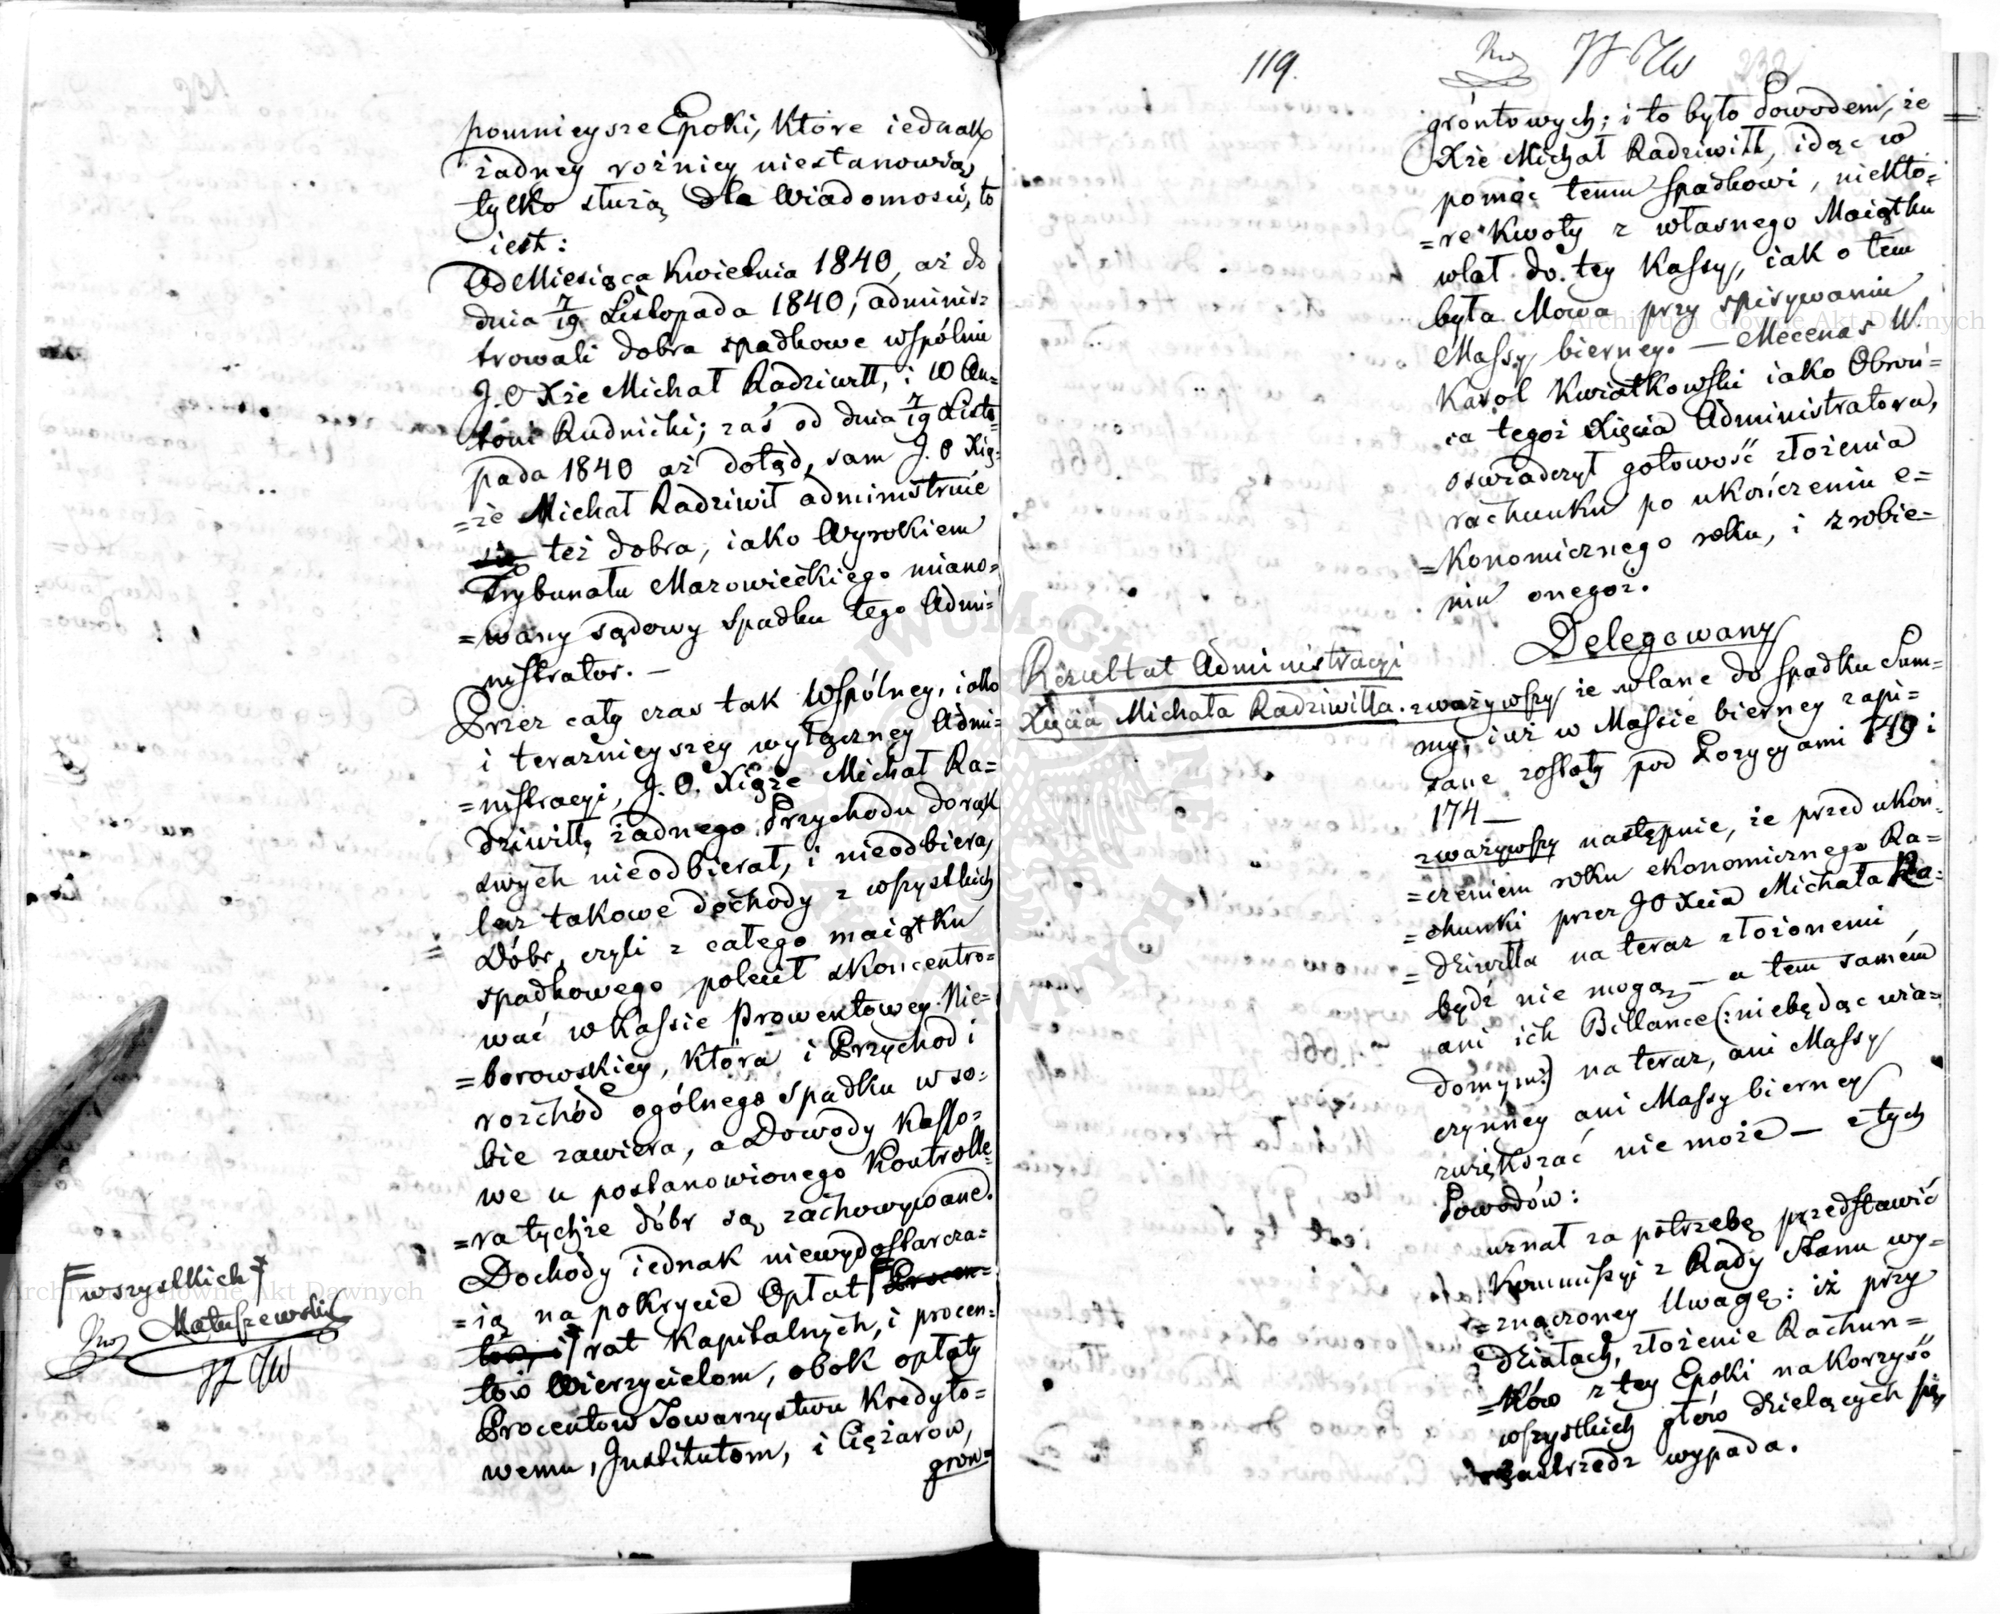 pomnieysze Epoki, które iednak
żadney rożnicy niestanowią,
tylko służą dla Wiadomości, to
iest:
Od Miesiąca Kwietnia 1840, aż do
dnia 7/19 Listopada 1840, adminis=
trowali dobra spadkowe wspólnie
J. O Xże Michał Radziwiłł, i W An=
toni Rudnicki; zaś od dnia 7/19 Listo=
pada 1840 aż dotąd, sam J. O Xią=
=że Michał Radziwił administruie
też dobra, iako Wyrokiem
Trybunału Mazowieckiego miano=
=wany sądowy spadku tego Admi=
nistrator. —
Przez cały czas tak Wspólney, iako
i teraznieyszey wyłączney Admi=
=nistracyi, J. O. Xiąże Michał Ra=
dziwiłł, żadnego Przychodu do rąk
swych nieodbierał, i nieodbiera,
lecz takowe dochody z wszystkich
= Dóbr, czyli z całego maiątku
spadkowego polecił skoncentro=
wać w Kassie Prowentowey Nie=
=borowskiey, która i Przychod i
rozchód ogólnego spadku w so=
bie zawiera, a Dowody Kasso=
we u postanowionego Kontrolle=
=ra tychże dóbr są zachowywane.
Dochody iednak niewydostarcza=
=ią na pokrycie Opłat Procen=
tow, i rat Kapitalnych, i procen=
tów Wierzycielom, obok opłaty
Procentow Towarzystwu Kredyto=
wemu, Institutom, i Ciężarow,
gron=
wszystkich
Matuszewski
119.
232
gróntowych; i to było Powodem, że
Xże Michał Radziwiłł, idąc w
pomoc temu spadkowi, niektó=
=re Kwoty z własnego Maiątku
wlał do tey Kassy, iak o tem
była Mowa przy spisywaniu
Massy bierney. — Mecenas W.
Karol Kwiatkowski iako Obroń=
ca tegoż Xięcia Administratora,
oswiadczył gotowość złożenia
rachunku po ukończeniu e=
=konomicznego roku, i zrobie=
niu onegoż.
Delegowany
Rezultat Administracyi
Xięcia Michała Radziwiłła.
zważywszy że wlane do spadku Sum=
my, iuż w Massie bierney zapi=
sane zostały pod Pozycyami 149 i
174 —
zważywszy następnie, że przed ukoń=
=czeniem roku ekonomicznego Ra=
=chunki przez JO Xcia Michała Ra=
=dziwiłła na teraz złożonemi
bydź nie mogą — a tem samém
ani ich Billance (:niebędąc wia=
domym:) na teraz, ani Massy
czynney ani Massy bierney
zwiększać nie może — z tych
Powodów:
uznał za potrzebę przedstawić
Kommissyi z Rady Stanu wy=
=znaczoney Uwagę: iż przy
Działach, złożenie Rachun=
=ków z tey Epoki na korzyść
wszystkich głów dzielących się
zastrzedz wypada.
Archiwum Główne Akt Dawnych
Archiwum Główne Akt Dawnych